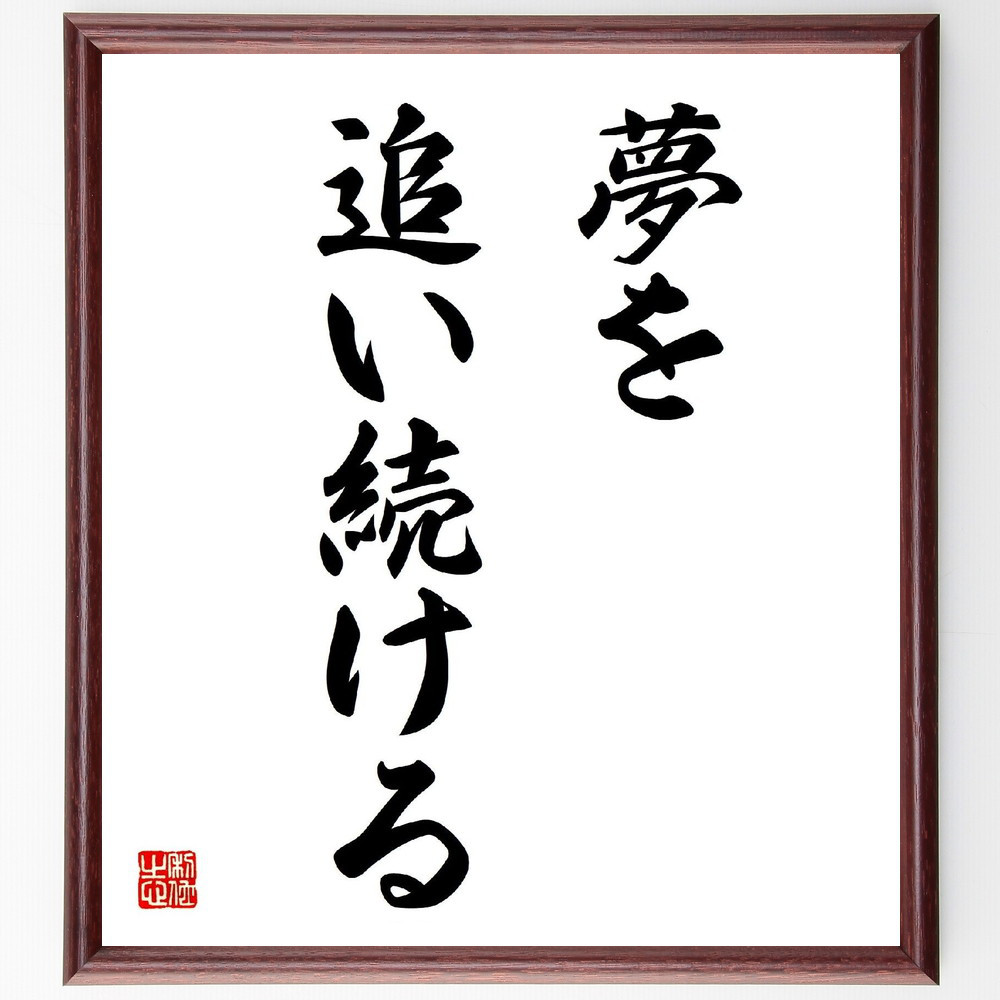 夢を
追い続ける